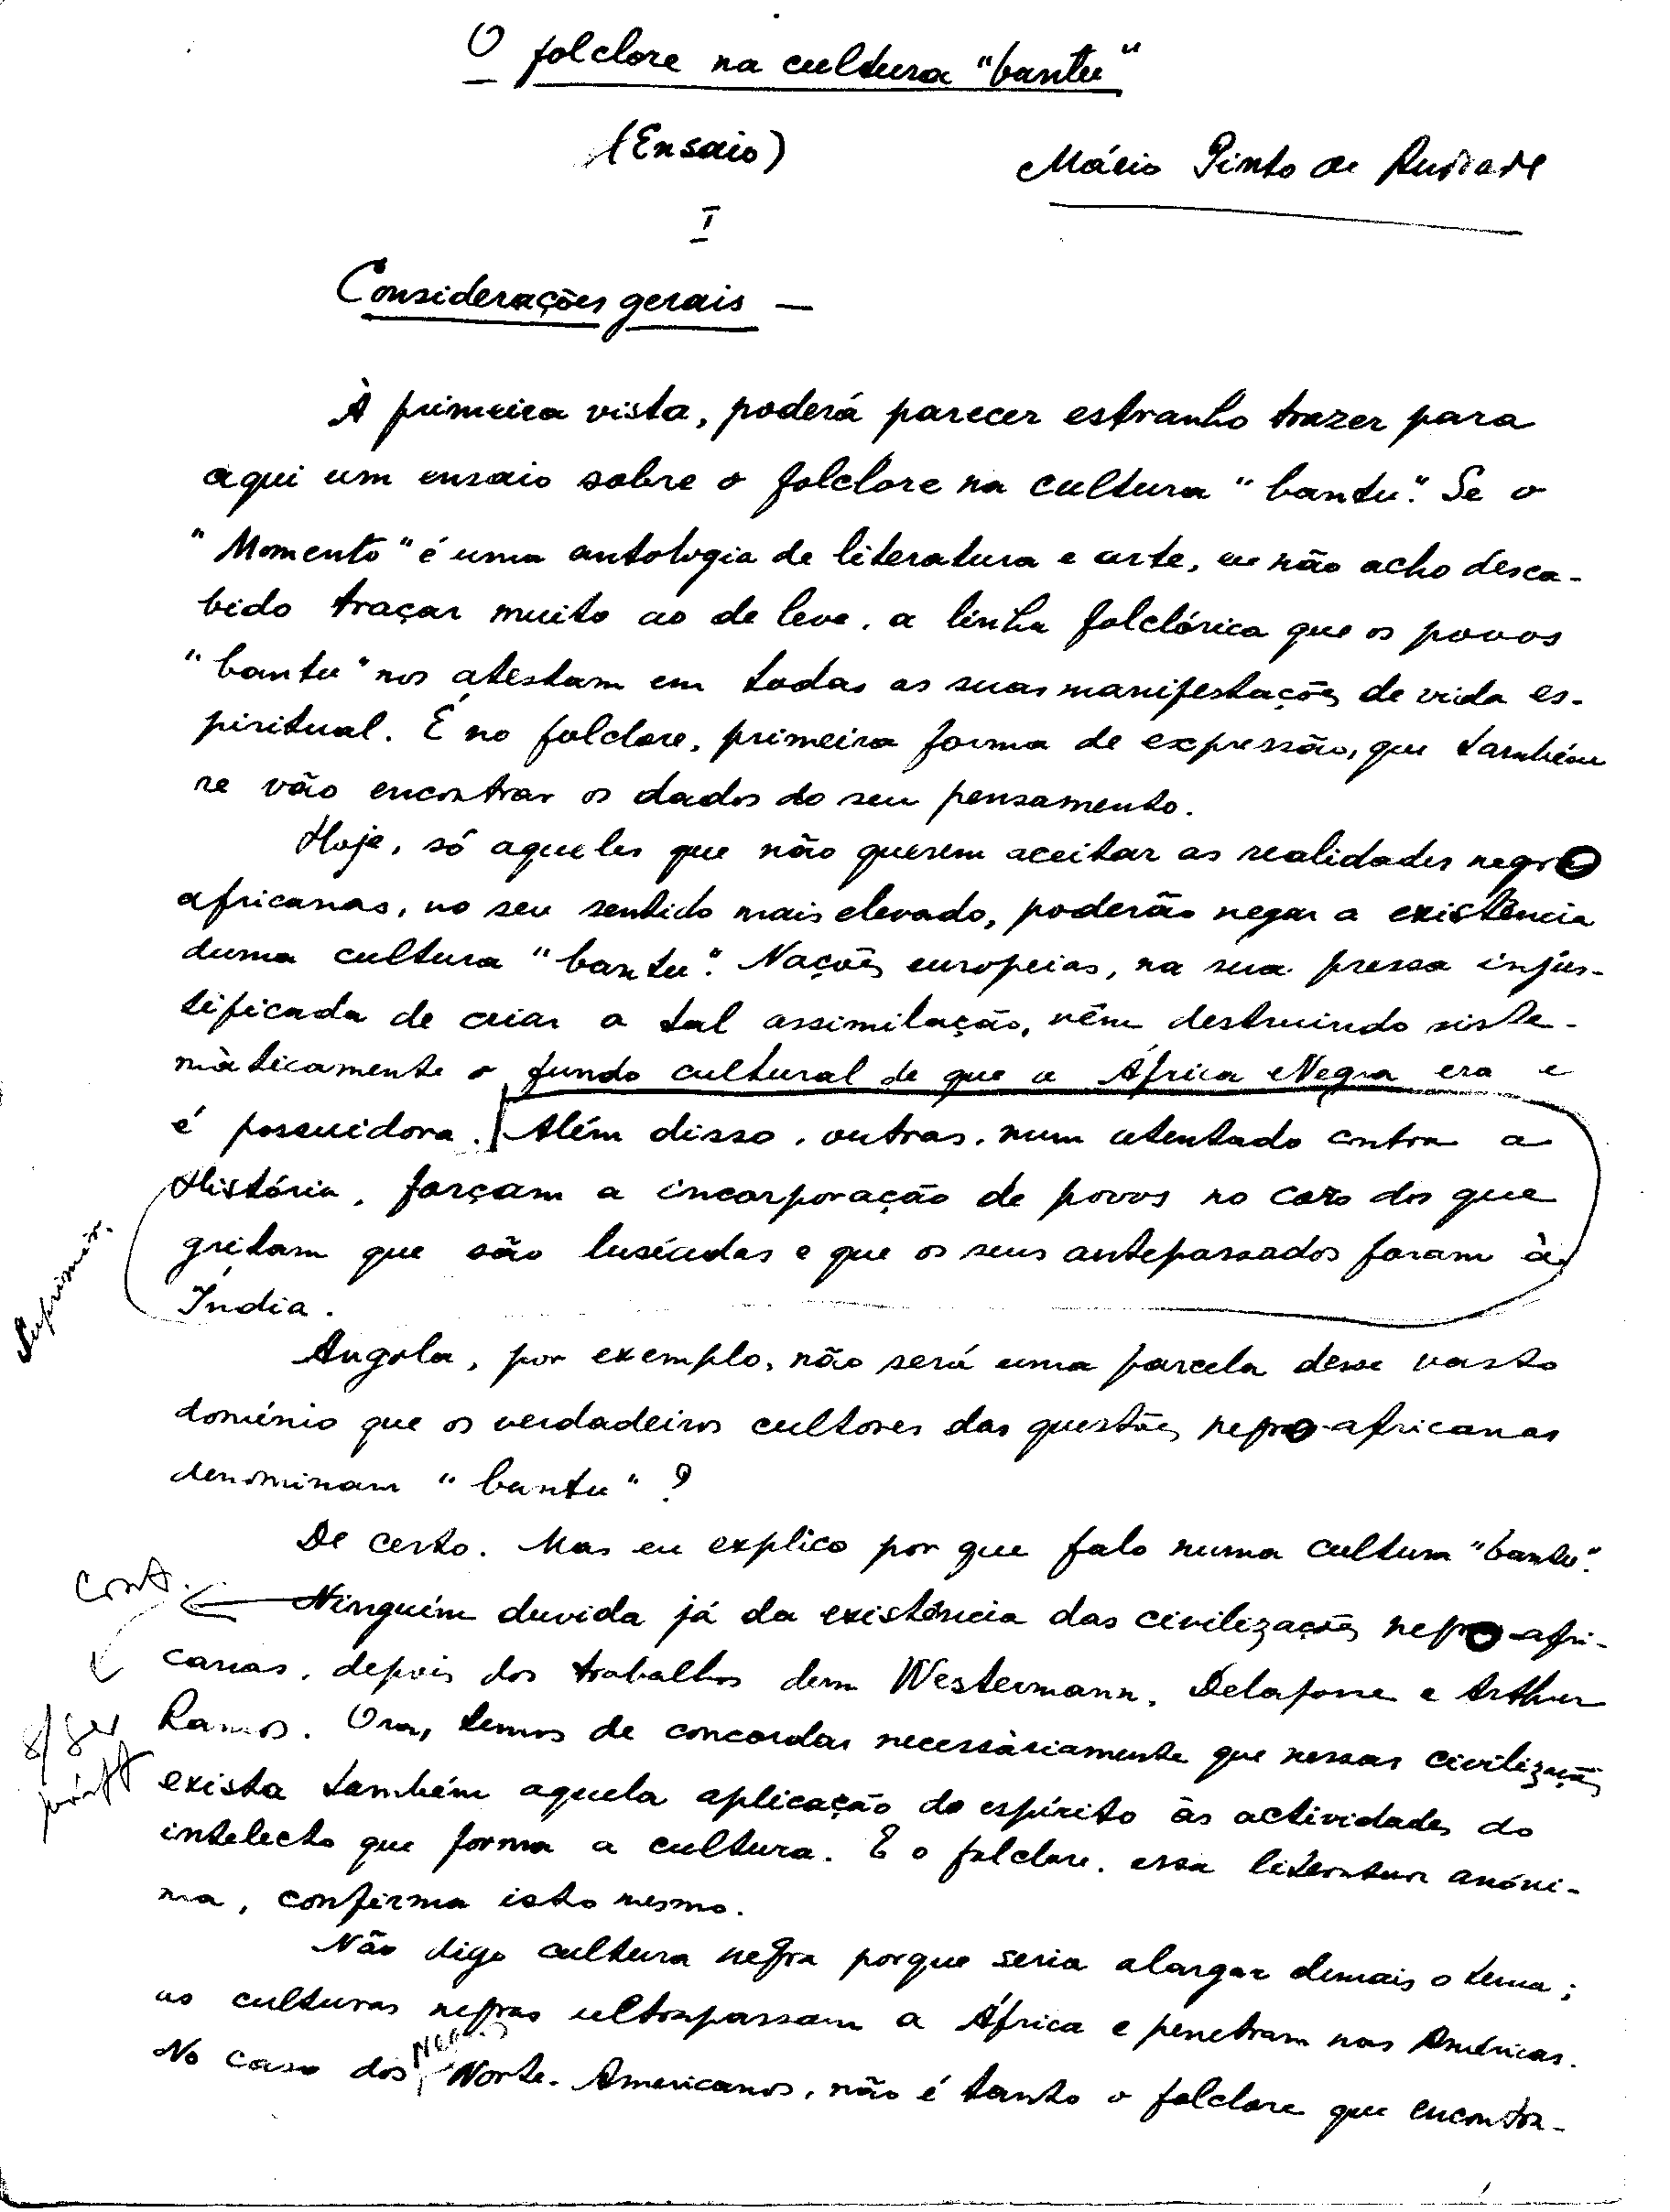 O folclore na cultura "bantu"
(Ensaio)
Mário Pinto de Andrade
I
Considerações gerais —
À primeira vista, poderá parecer estranho trazer para
aqui um ensaio sobre o folclore na cultura "bantu". Se o
"Momento" é uma antologia de literatura e arte, eu não acho desca-
bido traçar muito ao de leve, a linha folclórica que os povos
"bantu" nos atestam em todas as suas manifestações de vida es-
piritual. É no folclore, primeira forma de expressão, que também
se vão encontrar os dados do seu pensamento.
Hoje, só aqueles que não querem aceitar as realidades negro
africanas, no seu sentido mais elevado, poderão negar a existência
duma cultura "bantu". Nações europeias, na sua pressa injus-
tificada de criar a tal assimilação, vêm destruindo siste-
màticamente o fundo cultural de que a África Negra era e
é possuidora. Além disso, outras, num atentado contra a
História, forçam a incorporação de povos no coro dos que
gritam que são lusíadas e que os seus antepassados foram à
Índia.
Suprimir.
Angola, por exemplo, não será uma parcela desse vasto
domínio que os verdadeiros cultores das questões negro-africanas
denominam "bantu"?
De certo. Mas eu explico por que falo numa cultura "bantu".
Cont.
Ninguém duvida já da existência das civilizações negro-afri-
canas, depois dos trabalhos dum Westermann, Delafosse e Arthur
Ramos. Ora, temos de concordar necessàriamente que nessas civilizações
exista também aquela aplicação do espírito às actividades do
intelecto que forma a cultura. E o folclore, essa literatura anóni-
ma, confirma isto mesmo.
Não digo cultura negra porque seria alargar demais o tema;
as culturas negras ultrapassam a África e penetram nas Américas.
No caso dos Negros Norte-Americanos, não é tanto o folclore que encontra-